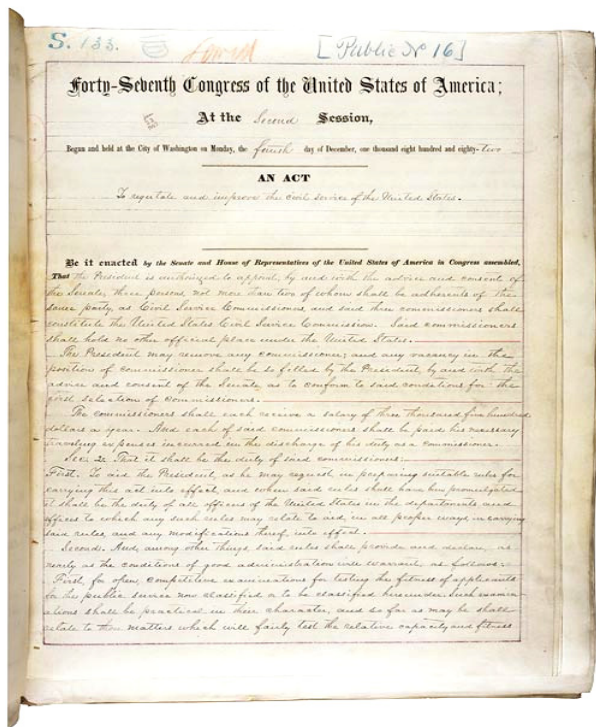 S. 133.
[Public No 16]
Forty-Seventh Congress of the United States of America;
At the Second Session,
Began and held at the City of Washington on Monday, the fourth day of December, one thousand eight hundred and eighty-two
AN ACT
To regulate and improve the civil service of the United States.
Be it enacted by the Senate and House of Representatives of the United States of America in Congress assembled,
That the President is authorized to appoint, by and with the advice and consent of
the Senate, three persons, not more than two of whom shall be adherents of the
same party, as Civil Service Commissioners, and said three commissioners shall
constitute the United States Civil Service Commission. Said commissioners
shall hold no other official place under the United States.
The President may remove any commissioner; and any vacancy in the
position of commissioner shall be so filled by the President, by and with the
advice and consent of the Senate, as to conform to said conditions for the
first selection of commissioners.
The commissioners shall each receive a salary of three thousand five hundred
dollars a year. And each of said commissioners shall be paid his necessary
traveling expenses incurred in the discharge of his duty as a commissioner.
Sec. 2. That it shall be the duty of said commissioners:
First. To aid the President, as he may request, in preparing suitable rules for
carrying this act into effect, and when said rules shall have been promulgated
it shall be the duty of all officers of the United States in the departments and
offices to which any such rules may relate to aid, in all proper ways, in carrying
said rules, and any modifications thereof, into effect.
Second. And, among other things, said rules shall provide and declare, as
nearly as the conditions of good administration will warrant, as follows:
First, for open, competitive examinations for testing the fitness of applicants
for the public service now classified or to be classified hereunder. Such examin-
ations shall be practical in their character, and so far as may be shall
relate to those matters which will fairly test the relative capacity and fitness